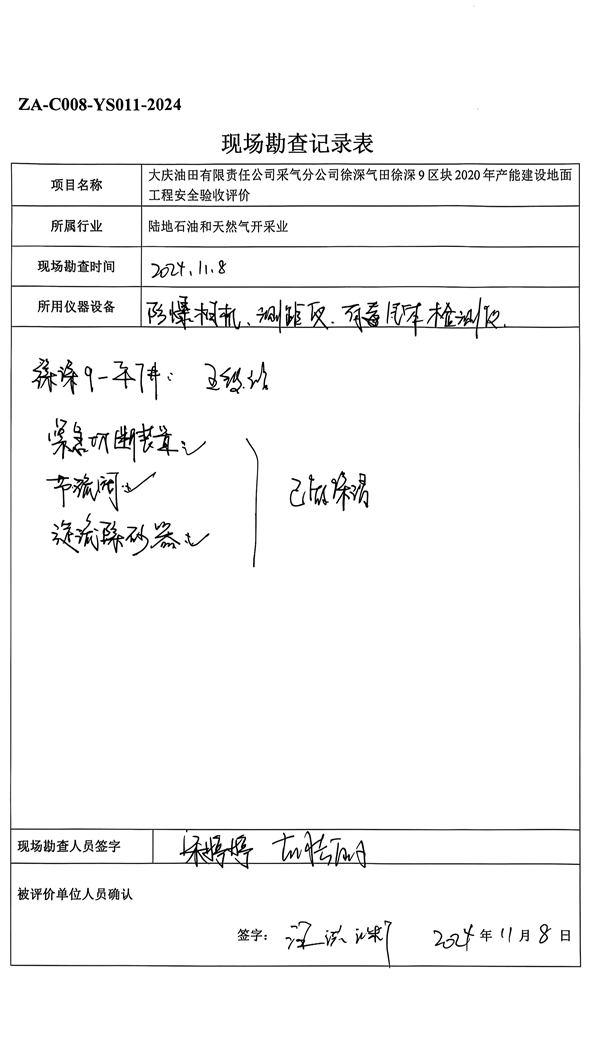 ZA-C008-YS011-2024
现场勘查记录表
项目名称
大庆油田有限责任公司采气分公司徐深气田徐深9区块2020年产能建设地面
工程安全验收评价
所属行业
陆地石油和天然气开采业
现场勘查时间
2024.11.8
所用仪器设备
防爆相机、测距仪、有毒气体检测仪.
徐深9-平7井:
紧急切断装置✓
节流阀✓
旋流除砂器✓
已做保温
现场勘查人员签字
梁婷婷
被评价单位人员确认
签字:
2024年11月8日